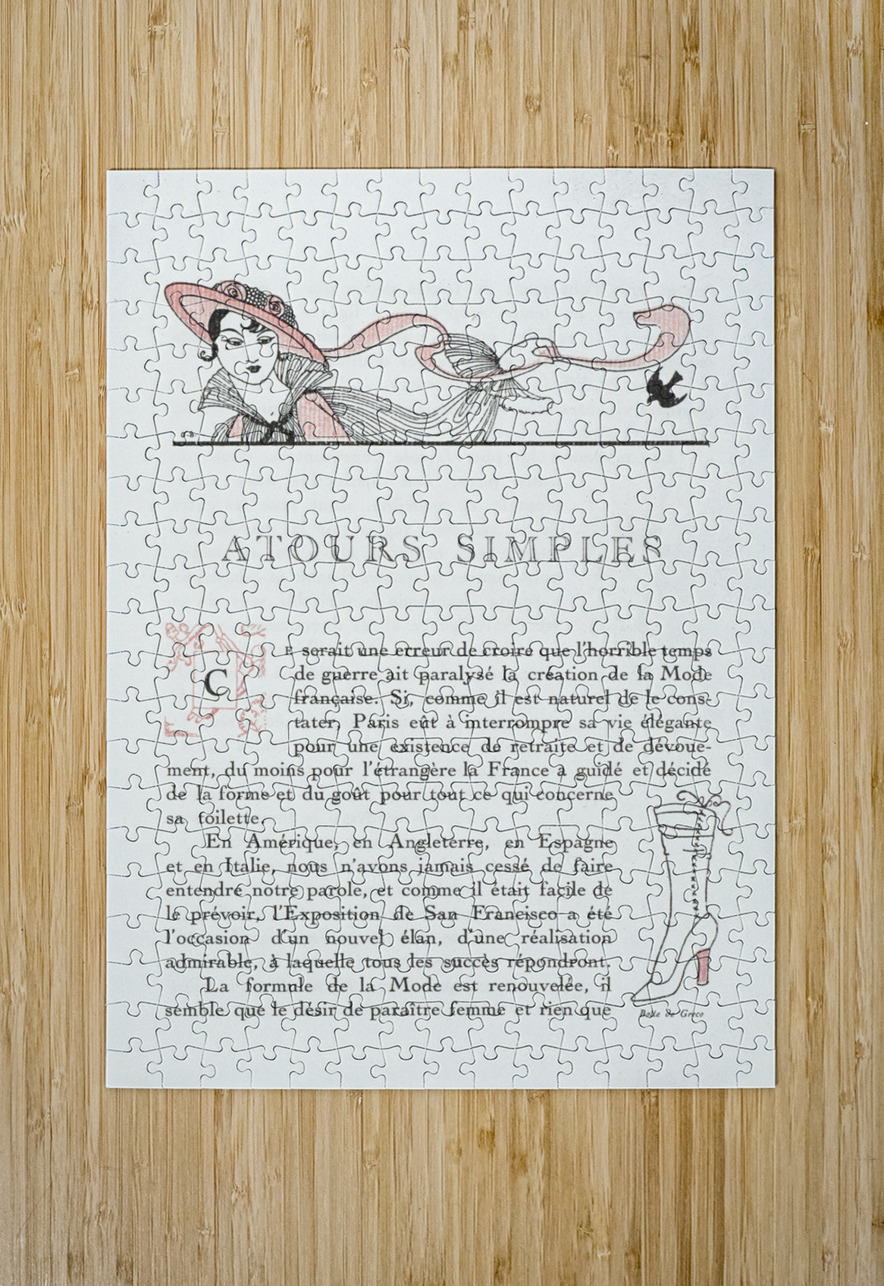 ATOURS SIMPLES
CE serait une erreur de croire que l'horrible temps
de guerre ait paralysé la création de la Mode
française. Si, comme il est naturel de le cons-
tater, Paris eût à interrompre sa vie élégante
pour une existence de retraite et de dévoue-
ment, du moins pour l'étrangère la France a guidé et décidé
de la forme et du goût pour tout ce qui concerne
sa toilette.
En Amérique, en Angleterre, en Espagne
et en Italie, nous n'avons jamais cessé de faire
entendre notre parole, et comme il était facile de
le prévoir, l'Exposition de San Francisco a été
l'occasion d'un nouvel élan, d'une réalisation
admirable, à laquelle tous les succès répondront.
La formule de la Mode est renouvelée, il
semble que le désir de paraître femme et rien que
Botte de Greco